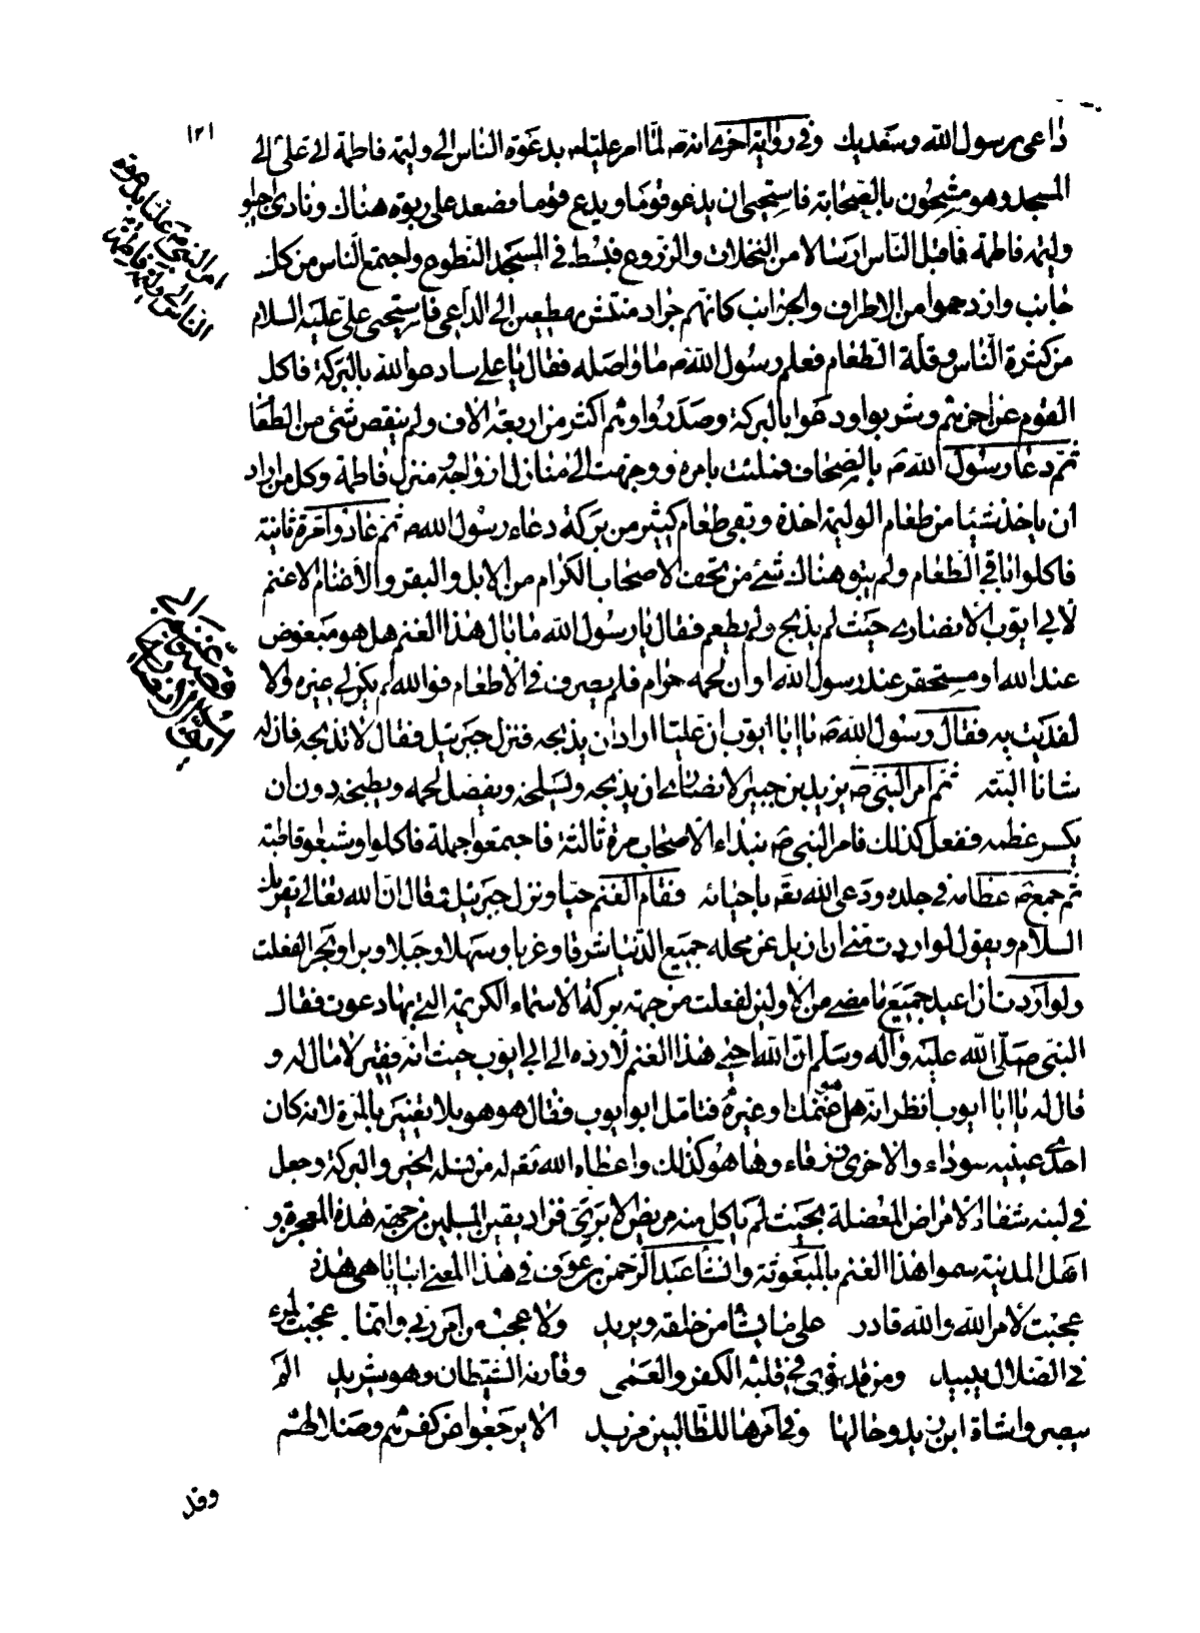 ١٢١
داعي رسول الله وسعديك وفي رواية اخرى انه ص لما امر عليا ع بدعوة الناس الى وليمة فاطمة اتى علي الى
المسجد وهو مشحون بالصحابة فاستحيى ان يدعو قوما ويدع قوما فصعد على ربوة هناك ونادى اجيبوا
وليمة فاطمة فاقبل الناس ارسالا من النخلات والزروع فبسط في المسجد النطوع واجتمع الناس من كل
جانب وازدحموا من الاطراف والجوانب كانهم جراد منتشر مهطعين الى الداعي فاستحيى علي عليه السلام
من كثرة الناس وقلة الطعام فعلم رسول الله ص ما واصله فقال يا علي سادعو الله بالبركة فاكل
القوم عن اخرهم وشربوا ودعوا بالبركة وصدروا وهم اكثر من اربعة الاف ولم ينقص شئ من الطعا
ثم دعا رسول الله ص بالصحاف فملئت بامره ووجهت الى منازل ازواجه ومنزل فاطمة وكل من اراد
ان ياخذ شيئا من طعام الوليمة اخذه وبقى طعام كثير من بركة دعاء رسول الله ص ثم عادوا مرة ثانية
فاكلوا باقي الطعام ولم يبق هناك شئ من تحف الاصحاب الكرام من الابل والبقر والاغنام الا غنم
لابي ايوب الانصاري حيث لم يذبح ولم يطعم فقال يا رسول الله ما بال هذا الغنم هل هو مبغوض
عند الله او مستحقر عند رسول الله او ان لحمه حرام فلم يصرف في الاطعام فوالله لم يكن لي غيره والا
لفديت به فقال رسول الله ص يا ابا ايوب ان عليا اراد ان يذبحه فنزل جبرئيل فقال لا تذبحه فان له
شانا البتة ثم امر النبي ص يزيد بن جبير الانصاري ان يذبحه ويسلخه ويفصل لحمه ويطبخه دون ان
يكسر عظمه ففعل كذلك فامر النبي ص بنداء الاصحاب مرة ثالثة فاجتمعوا جملة فاكلوا وشبعوا قاطبة
ثم جمع ص عظامه في جلده ودعى الله تعه باحيائه فقام الغنم حيا ونزل جبرئيل ع فقال ان الله تعالى يقرئك
السلام ويقول لو اردت مني ان ازيل عن محله جميع الدنيا شرقا وغربا وسهلا وجبلا وبرا وبحرا لفعلت
ولو اردت ان اعيد جميع ما مضى من الاولين لفعلت من جهة بركة الاسماء الكريمة التي بها دعوت فقال
النبي صلى الله عليه وآله وسلم ان الله احيى هذا الغنم لارده الى ابي ايوب حيث انه فقير لا مال له و
قال له يا ابا ايوب انظر انه هل هو غنمك او غيره فتامل ابو ايوب فقال هو هو بلا تغيير بالمرة لانه كان
احدى عينيه سوداء والاخرى زرقاء وها هو كذلك واعطاه الله تعه له من نسله الخير والبركة وجعل
في لبنه شفاء الامراض المعضلة بحيث لم ياكل منه مريض الا برئ فزاد يقين المسلمين من جهة هذه المعجزة و
اهل المدينة سموا هذا الغنم بالمبعوثة وانشا عبد الرحمن بن عوف في هذا المعنى ابياتا هي هذه
عجبت لامر الله والله قادر على ما يشا من خلقه ويريد ولا عجب من امر ربي وانما عجبت لمرء
في الضلال يبيد ومن قد ثوى في قلبه الكفر والعمى وقارنه الشيطان وهو شريد الم
يبصروا شاة ابن زيد وحالها وفي امرها للطالبين مزيد الا يرجعوا عن كفرهم وضلالهم
وقد
امر النبي ص عليا بدعوة
الناس الى وليمة فاطمة
قصة غنم ابي
ايوب الانصاري